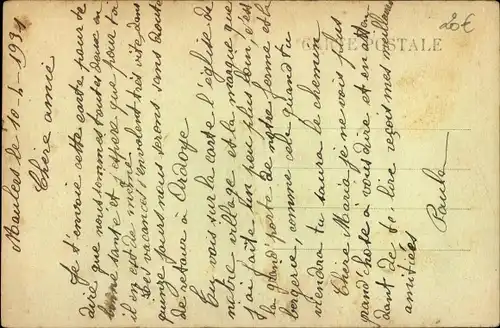 20€
CARTE POSTALE
le 10-4-1931
Chère amie
Je t'envoie cette carte pour te
dire que nous sommes toutes deux en
bonne santé et j'espère que pour toi
il en est de même.
Les vacances s'envolent très vite, dans
quinze jours nous serons sans doute
de retour à
Tu vois sur la carte l'église de
notre village et la marque que
j'ai faite un peu plus loin, c'est
la grand'porte de notre ferme, et la
bergerie, comme cela quand tu
viendra tu saura le chemin
Chère Maria je ne vois plus
grand'chose à vous dire et en atten-
dant de te lire reçois mes meilleures
amitiées
Paula